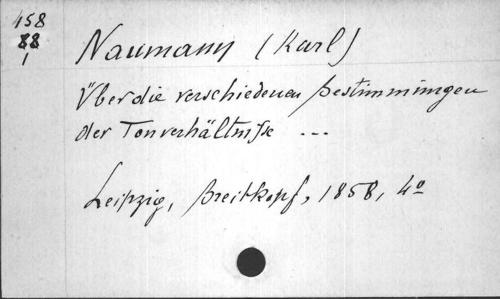 458
88
1
Naumann (Karl)
Über die verschiedenen Bestimmungen
der Tonverhältnisse ...
Leipzig, Breitkopf, 1858, 4º